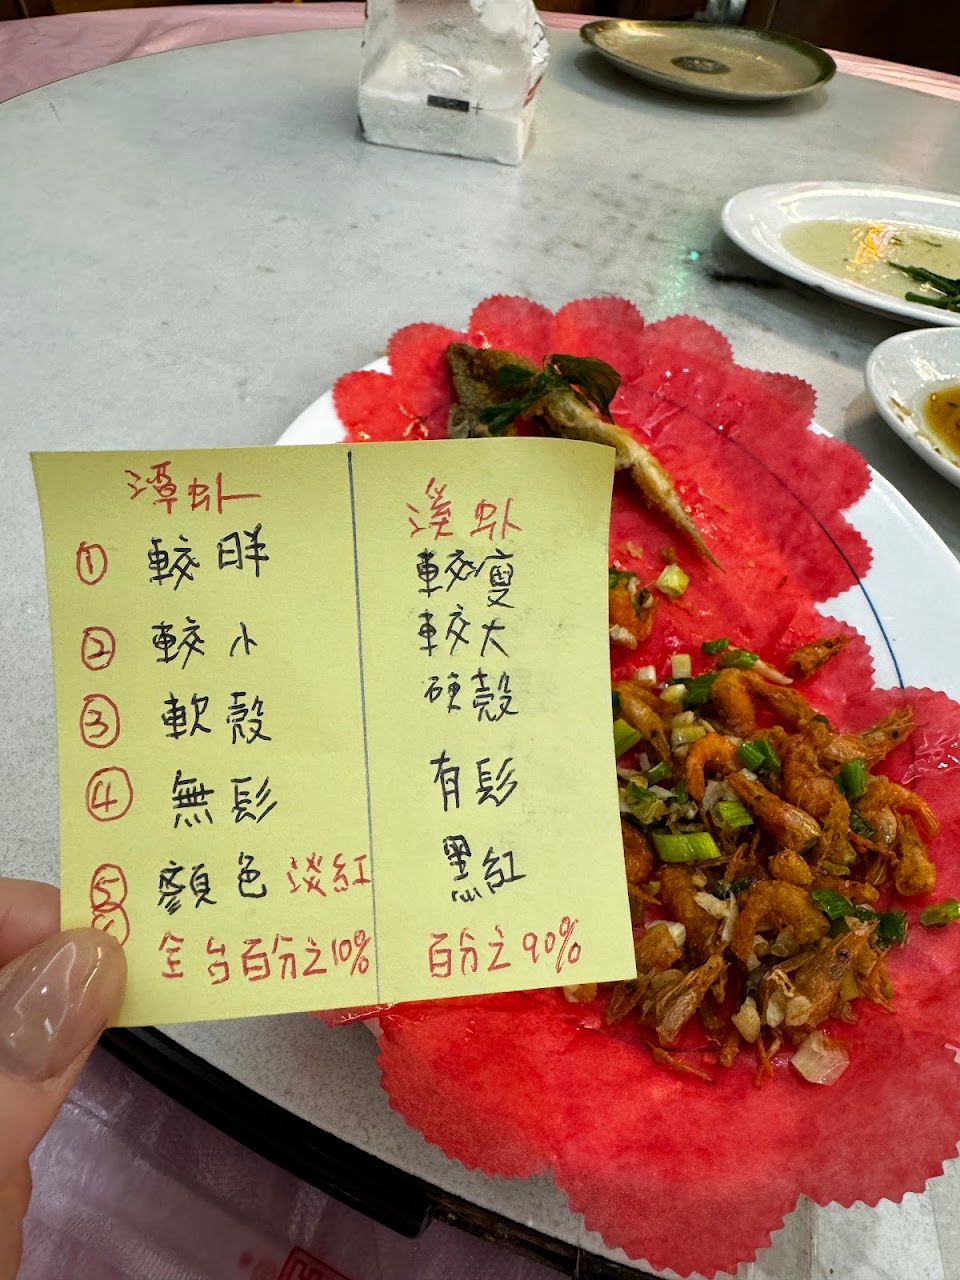 潭虾 溪虾
① 較胖 較瘦
② 較小 較大
③ 軟殼 硬殼
④ 無髟 有髟
⑤ 顏色淡紅 黑紅
全台百分之10% 百分之90%